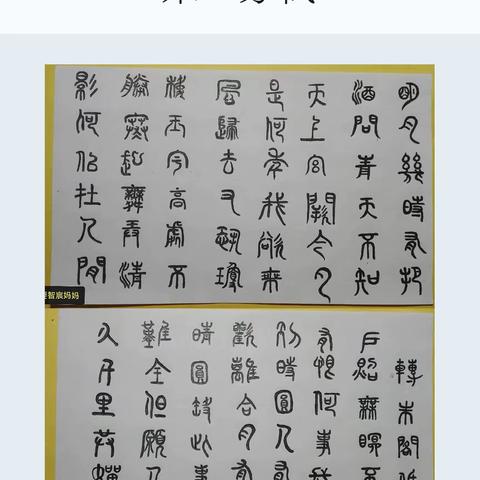 明月幾時有把
酒問青天不知
天上宮闕今夕
是何年我欲乘
風歸去又恐瓊
樓玉宇高處不
勝寒起舞弄清
影何似在人間
智宸妈妈
轉朱閣低
戶照無眠不
有恨何事長
別時圓人有
歡離合月有
晴圓缺此事
難全但願人
久千里共嬋